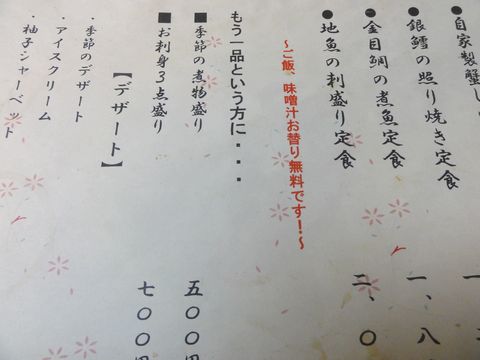 ●自家製蟹し
●銀鱈の照り焼き定食 一、八
●金目鯛の煮魚定食 二、〇
●地魚の刺盛り定食
～ご飯、味噌汁お替り無料です！～
もう一品という方に・・・
■季節の煮物盛り 五〇〇円
■お刺身３点盛り 七〇〇円
【デザート】
・季節のデザート
・アイスクリーム
・柚子シャーベット